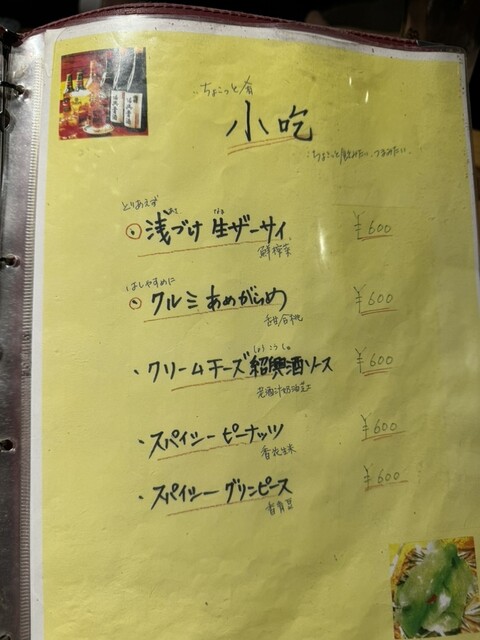 ちょこっと肴
小吃
ちょこっと飲みたい、つまみたい。
とりあえず
浅づけ 生ザーサイ ¥600
鮮搾菜
はしやすめに
クルミ あめがらめ ¥600
しょうこうしゅ
クリームチーズ 紹興酒ソース ¥600
スパイシー ピーナッツ ¥600
スパイシー グリンピース ¥600
香青豆